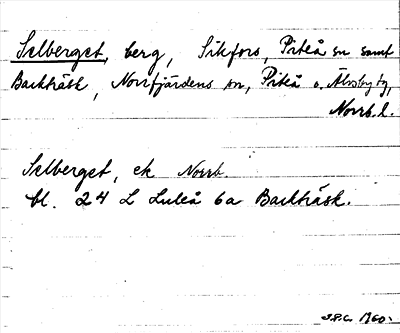 Selberget, berg, Sikfors, Piteå sn samt
Backträsk, Norrfjärdens sn, Piteå o. Älvsby tg,
Norrb. l.
Selberget, ek Norrb.
bl. 24 L Luleå 6a Backträsk.
1960.